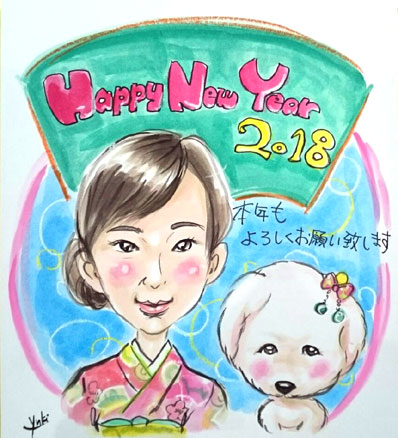 Happy New Year
2018
本年も
よろしくお願い致します
Yuki